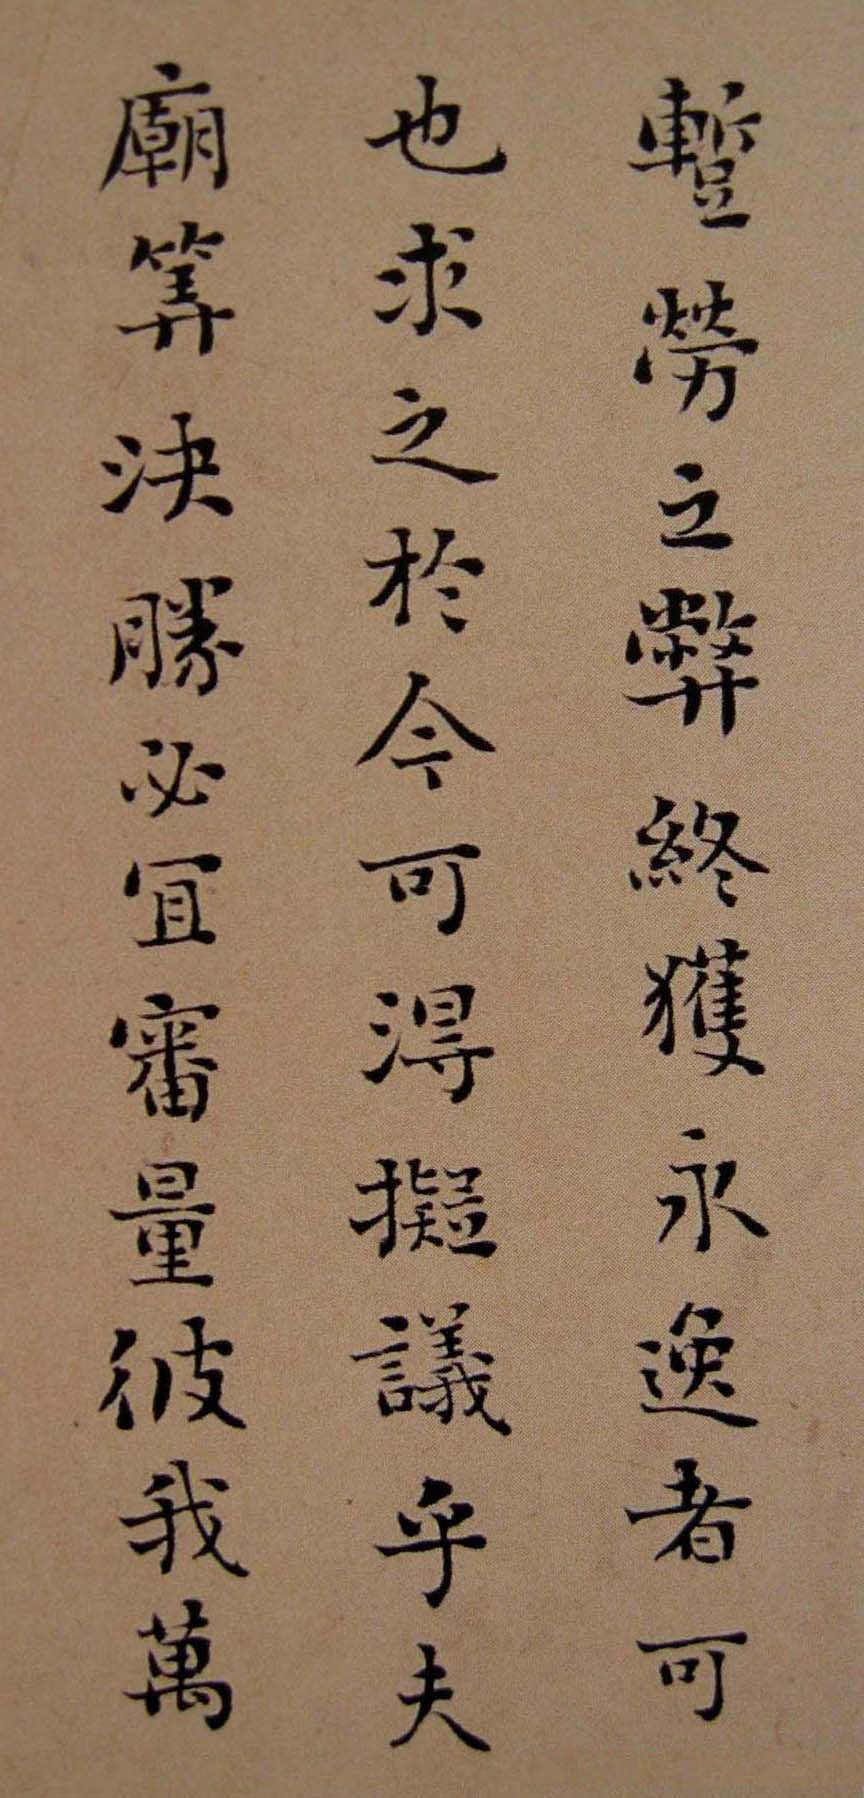 蹔勞之弊終獲永逸者可
也求之於今可得擬議乎夫
廟筭決勝必冝審量彼我萬